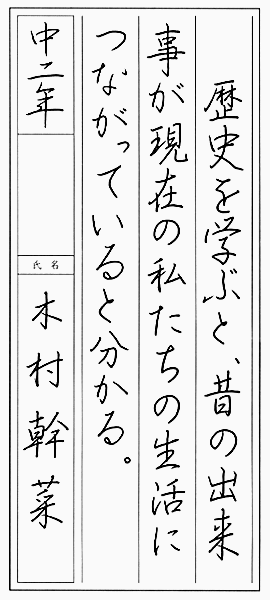 歴史を学ぶと、昔の出来
事が現在の私たちの生活に
つながっていると分かる。
中二年
氏名
木村幹菜